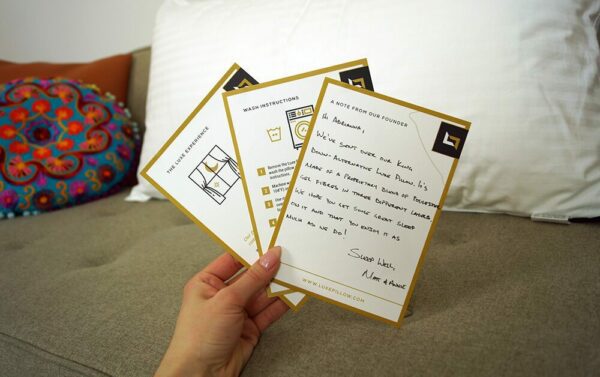 THE LUXE EXPERIENCE
WASH INSTRUCTIONS
1 Remove the
wash the pillow
instructions.
2 Machine
3
A NOTE FROM OUR FOUNDER
Hi Adrianna,
We've sent over our King
Down-Alternative Luxe Pillow. It's
made of a proprietary blend of polyester
gel fibers in three different layers
We hope you get some great sleep
on it and that you enjoy it as
much as we do!
Sleep Well,
WWW.LUXEPILLOW.COM